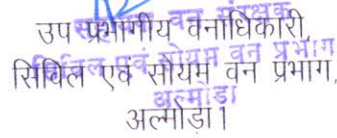 उप प्रभागीय वनाधिकारी,
सिविल एवं सोयम वन प्रभाग,
अल्मोडा।
वन संरक्षक
एवं सोयम वन प्रभाग
अल्मोडा